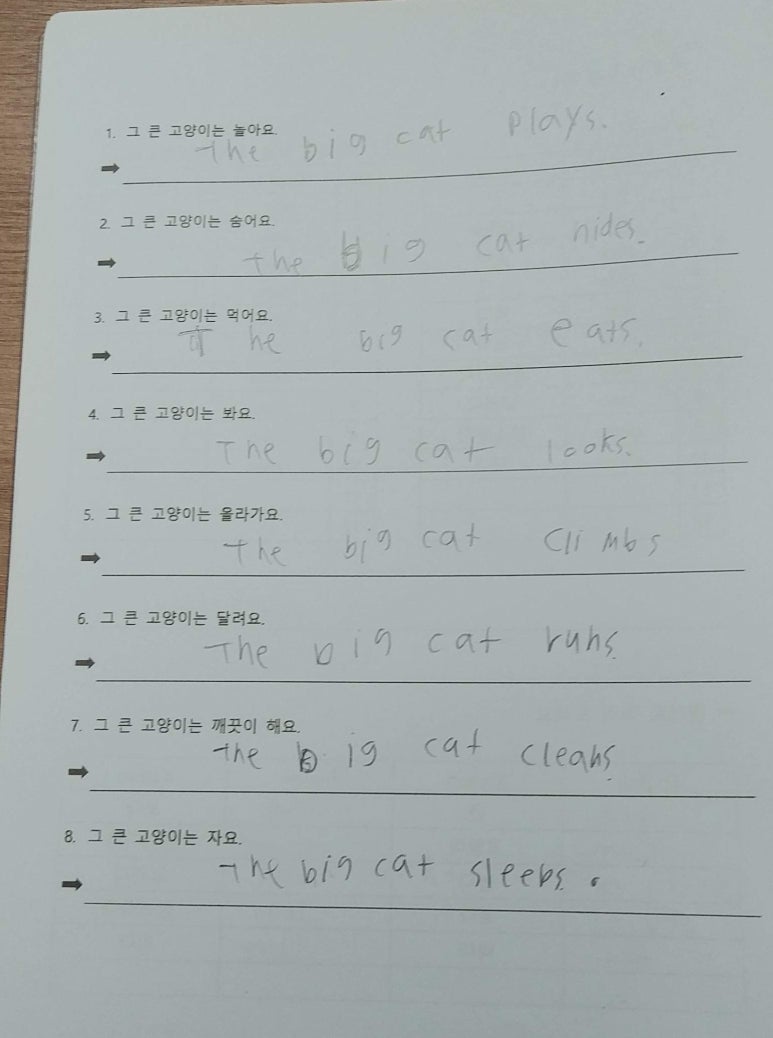 1. 그 큰 고양이는 놀아요.
➡ The big cat plays.
2. 그 큰 고양이는 숨어요.
➡ the big cat hides.
3. 그 큰 고양이는 먹어요.
➡ The big cat eats.
4. 그 큰 고양이는 봐요.
➡ The big cat looks.
5. 그 큰 고양이는 올라가요.
➡ The big cat climbs
6. 그 큰 고양이는 달려요.
➡ The big cat runs.
7. 그 큰 고양이는 깨끗이 해요.
➡ The big cat cleans.
8. 그 큰 고양이는 자요.
➡ The big cat sleeps.